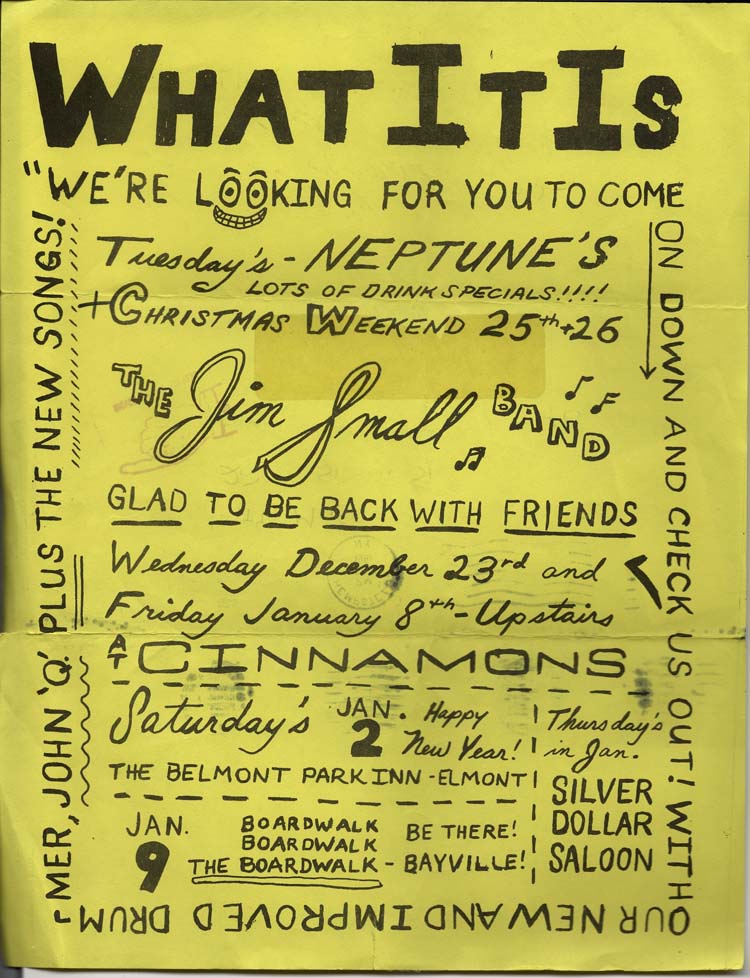 WHAT IT IS
"WE'RE LOOKING FOR YOU TO COME
ON DOWN AND CHECK US OUT! WITH
OUR NEW AND IMPROVED DRUM-
MER, JOHN 'Q.' PLUS THE NEW SONGS!
Tuesday's - NEPTUNE'S
LOTS OF DRINK SPECIALS!!!!
+ CHRISTMAS WEEKEND 25th + 26
THE Jim Small BAND
GLAD TO BE BACK WITH FRIENDS
Wednesday December 23rd and
Friday January 8th - Upstairs
AT CINNAMONS
Saturday's JAN. 2 Happy
New Year!
THE BELMONT PARK INN - ELMONT
Thursday's
in Jan.
SILVER
DOLLAR
SALOON
JAN.
9
BOARDWALK
BOARDWALK
THE BOARDWALK -
BE THERE!
BAYVILLE!